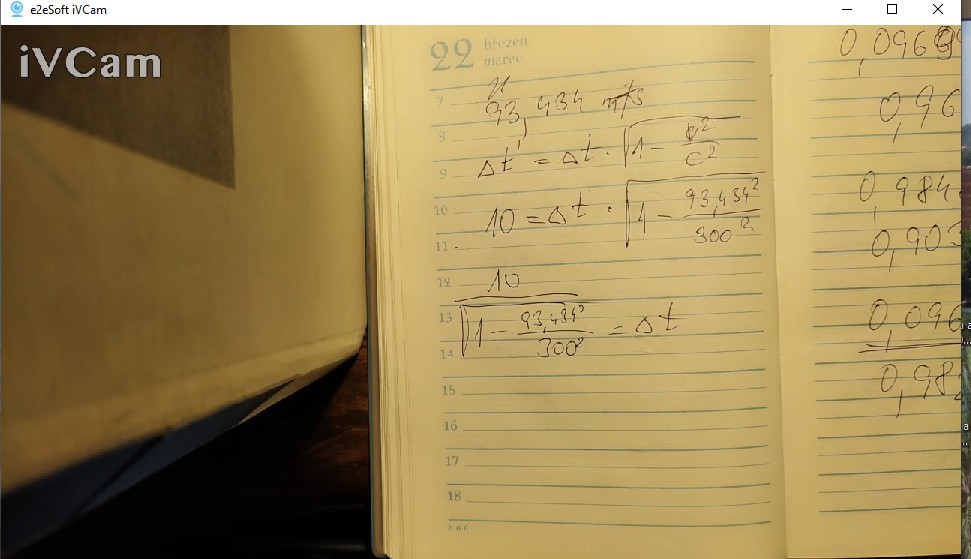 e2eSoft iVCam
iVCam
22 březen
marec
7
93,434 m/s
8
Δt' = Δt · √(1 - v²/c²)
9
10
10 = Δt · √(1 - 93,434²/300²)
11
12
10
13
√(1 - 93,434²/300²) = Δt
14
15
16
17
18
0,096
0,96
0,984
0,903
0,096
0,98